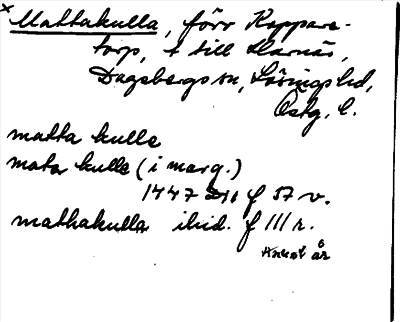 x Mattakulla, förr Koppars-
torp, t till Marnäs,
Dagsbergs sn, Lösings hd,
Östg. l.
matta kulle
mata kulle (i marg.)
1447 D11 f 57 v.
mathakulla ibid. f 111 r.
Annat år